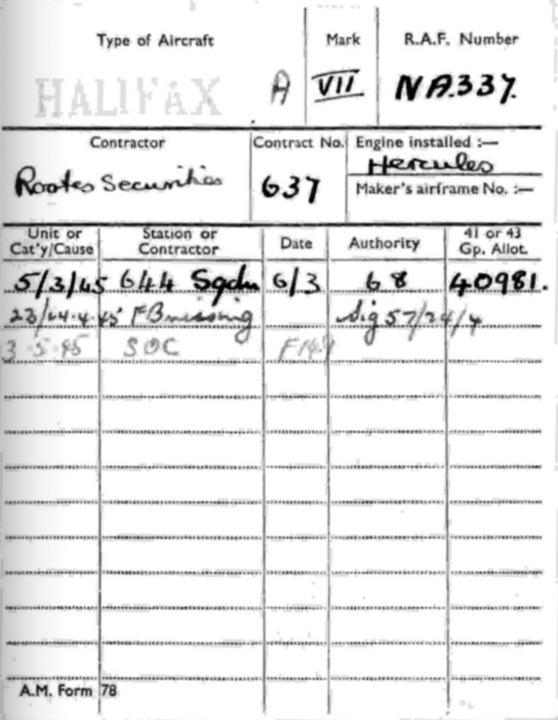 Type of Aircraft Mark R.A.F. Number
HALIFAX A VII NA.337.
Contractor Contract No. Engine installed :—
Hercules
Rootes Securities 637 Maker's airframe No. :—
Unit or Cat'y/Cause Station or Contractor Date Authority 41 or 43 Gp. Allot.
5/3/45 644 Sqdn 6/3 68 40981.
23/24.4.45 FB missing Sig 57/24/4
3.5.45 SOC
A.M. Form 78